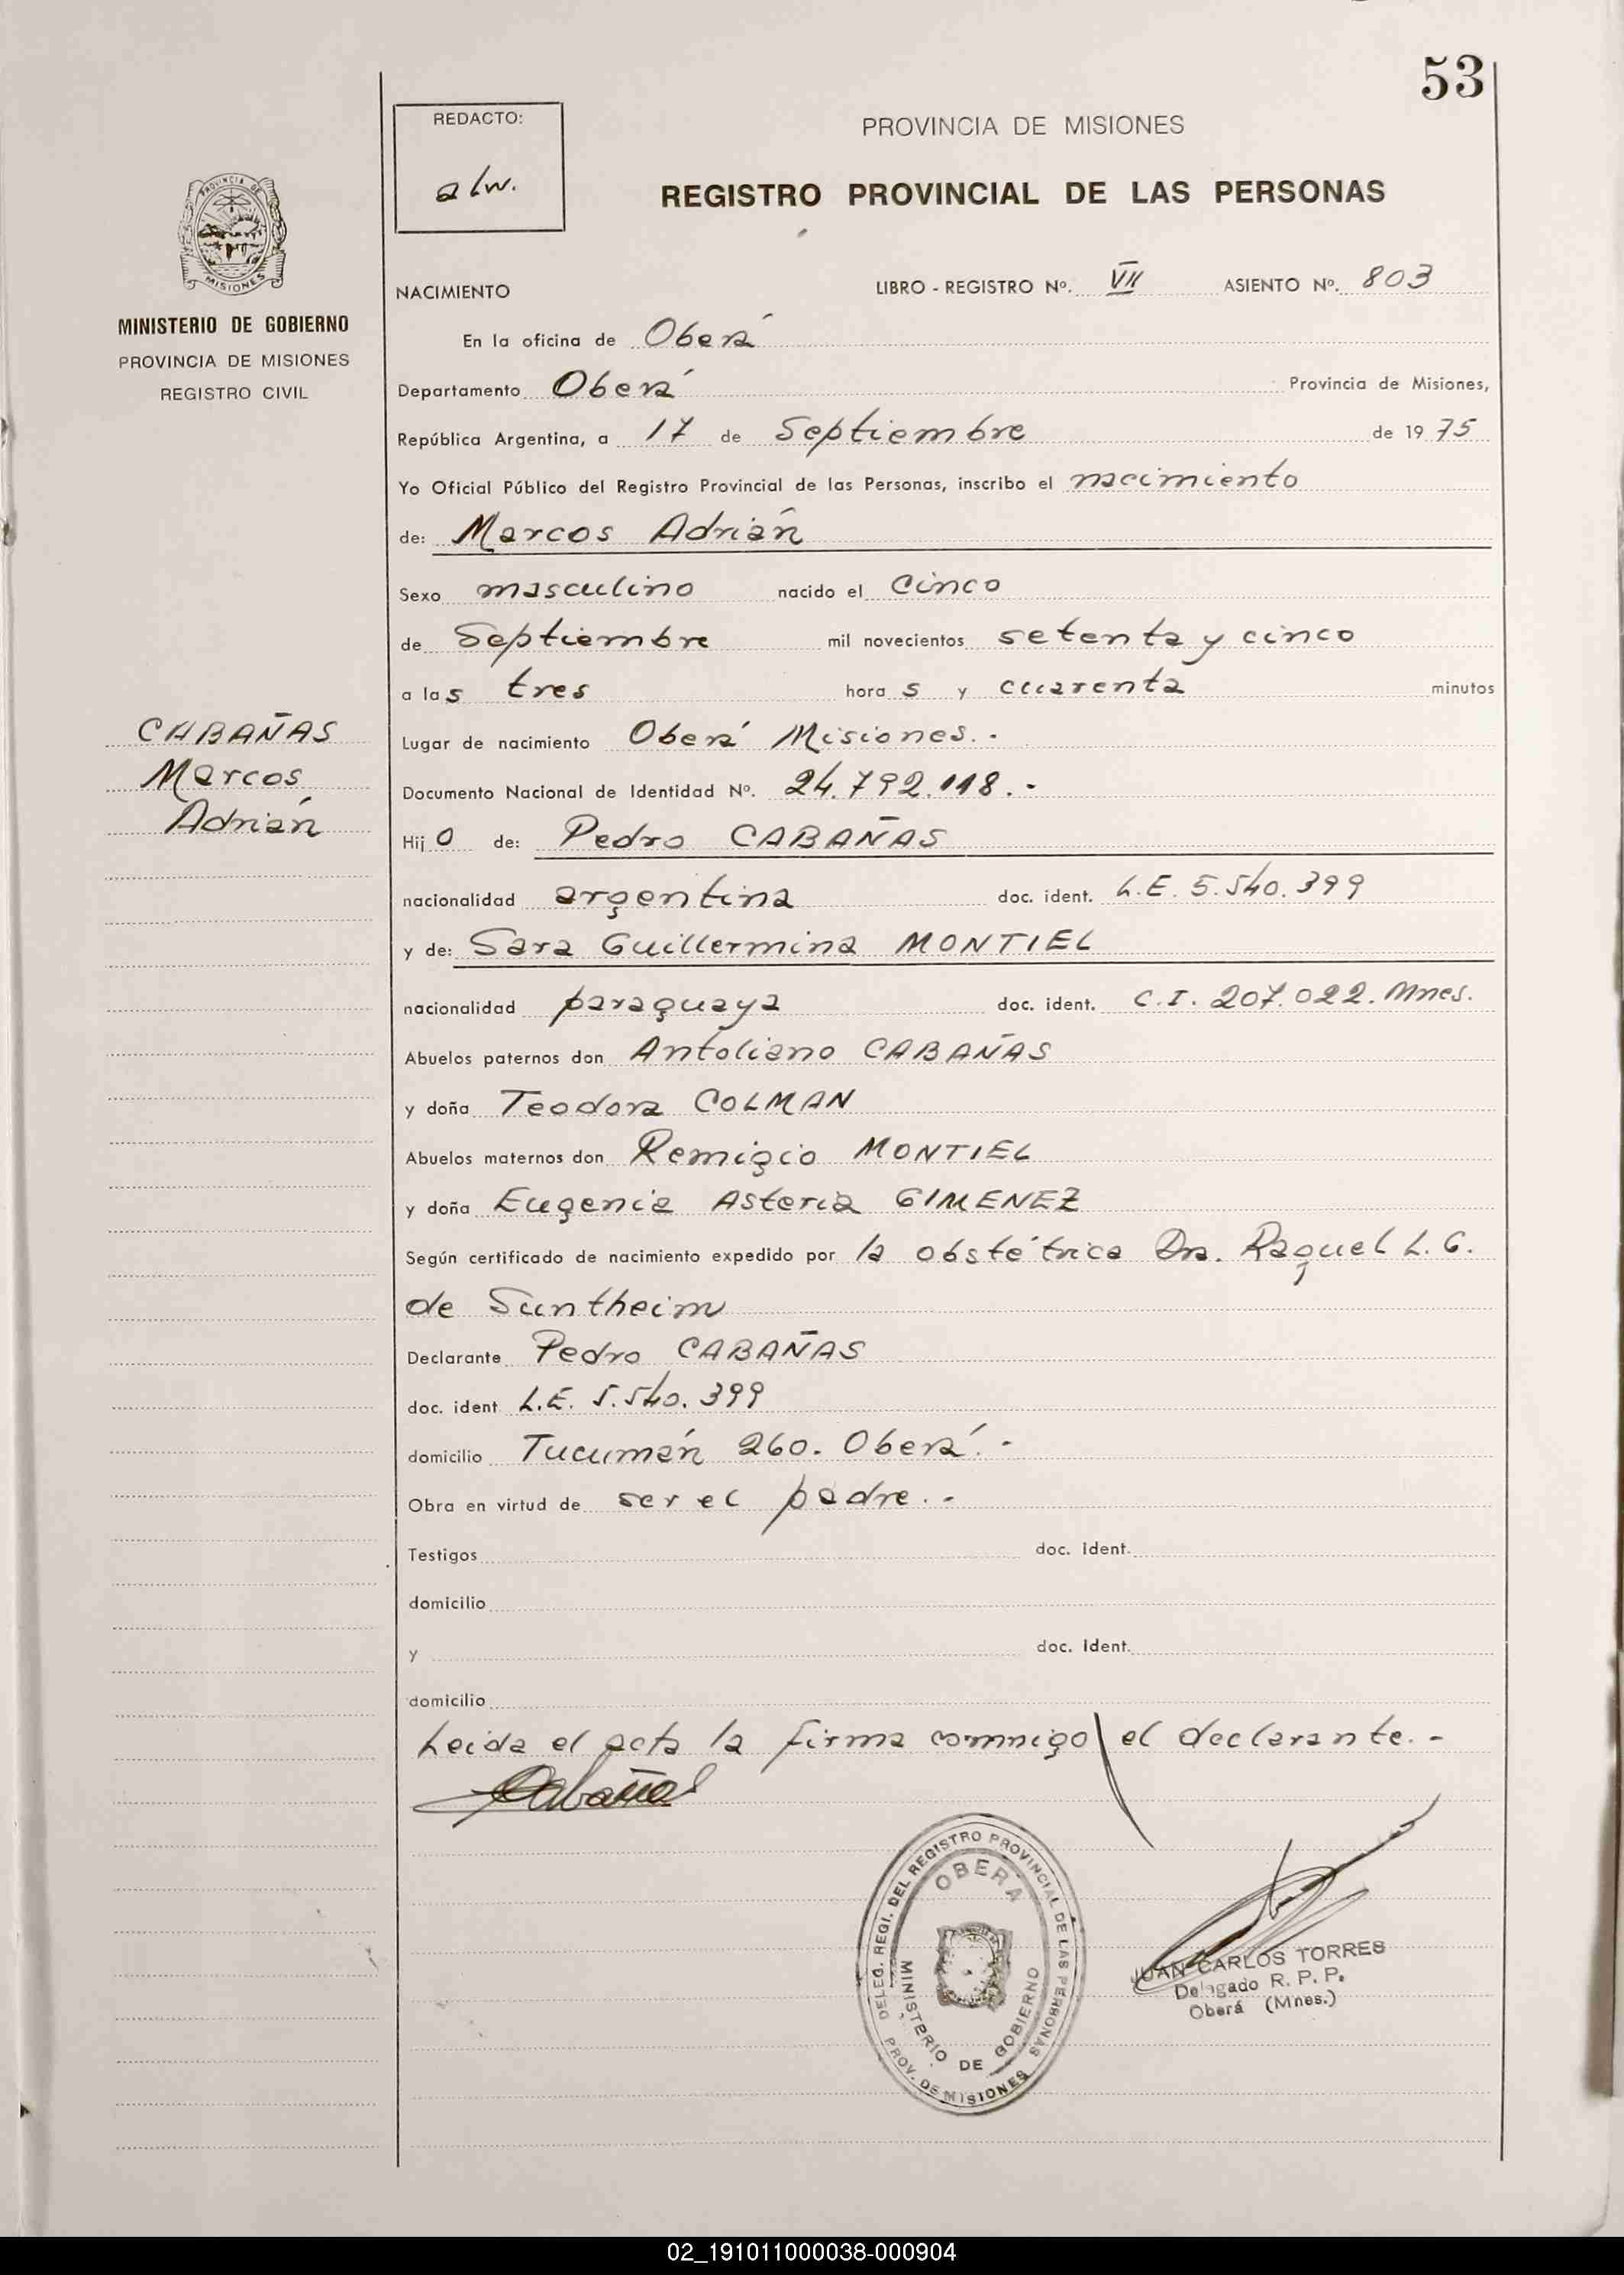 53
REDACTO:
alw.
PROVINCIA DE MISIONES
REGISTRO PROVINCIAL DE LAS PERSONAS
PROVINCIA DE
MISIONES
MINISTERIO DE GOBIERNO
PROVINCIA DE MISIONES
REGISTRO CIVIL
NACIMIENTO LIBRO - REGISTRO Nº. VII ASIENTO Nº. 803
En la oficina de Oberá
Departamento Oberá Provincia de Misiones,
República Argentina, a 17 de Septiembre de 1975
Yo Oficial Público del Registro Provincial de las Personas, inscribo el nacimiento
de: Marcos Adrián
Sexo masculino nacido el cinco
de Septiembre mil novecientos setenta y cinco
a las tres horas y cuarenta minutos
CABAÑAS
Marcos
Adrián
Lugar de nacimiento Oberá Misiones.-
Documento Nacional de Identidad Nº. 24.792.118.-
Hijo de: Pedro CABAÑAS
nacionalidad argentina doc. ident. L.E. 5.540.399
y de: Sara Guillermina MONTIEL
nacionalidad paraguaya doc. ident. C.I. 207.022. Mnes.
Abuelos paternos don Antoliano CABAÑAS
y doña Teodora COLMAN
Abuelos maternos don Remigio MONTIEL
y doña Eugenia Asteria GIMENEZ
Según certificado de nacimiento expedido por la obstétrica Dra. Raquel L. G.
de Suntheim
Declarante Pedro CABAÑAS
doc. ident L.E. 5.540.399
domicilio Tucumán 260. Oberá.-
Obra en virtud de ser el padre.-
Testigos doc. ident.
domicilio
y doc. ident.
domicilio
Leida el acta la firma conmigo el declarante.-
Cabañas
DELEG. REGI. DEL REGISTRO PROVINCIAL DE LAS PERSONAS
OBERA
MINISTERIO DE GOBIERNO
PROV. DE MISIONES
JUAN CARLOS TORRES
Delegado R. P. P.
Oberá (Mnes.)
02_191011000038-000904